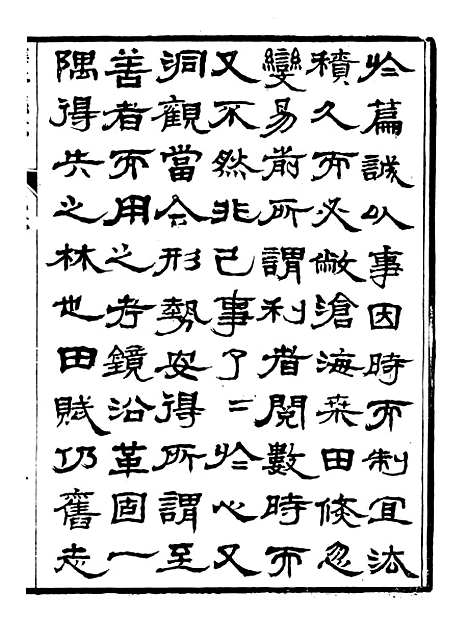 於篇誠以事因時而制宜法
積久而必敝滄海桒田倏忽
變易前所謂利者閱數時而
又不然非己事了〻於心又
洞觀當今形勢安得所謂至
善者而用之考鏡沿革固一
隅得失之林也田賦仍舊志